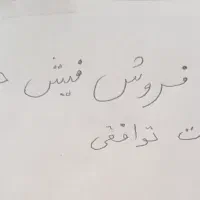 فروش فیش
توافقی